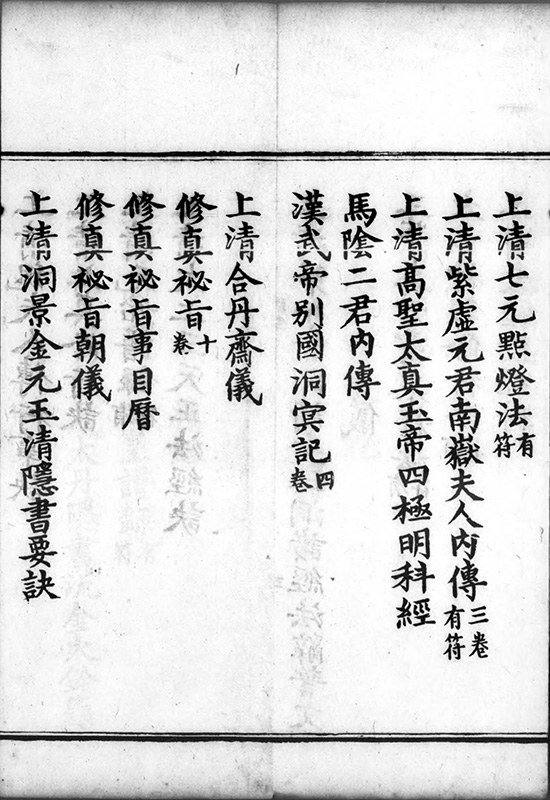 上清七元點燈法有符
上清紫虛元君南嶽夫人内傳三卷有符
上清髙聖太真玉帝四極明科經
馬陰二君内傳
漢武帝别國洞冥記四卷
上清合丹齋儀
修真祕旨十卷
修真祕旨事目曆
修真祕旨朝儀
上清洞景金元玉清隱書要訣